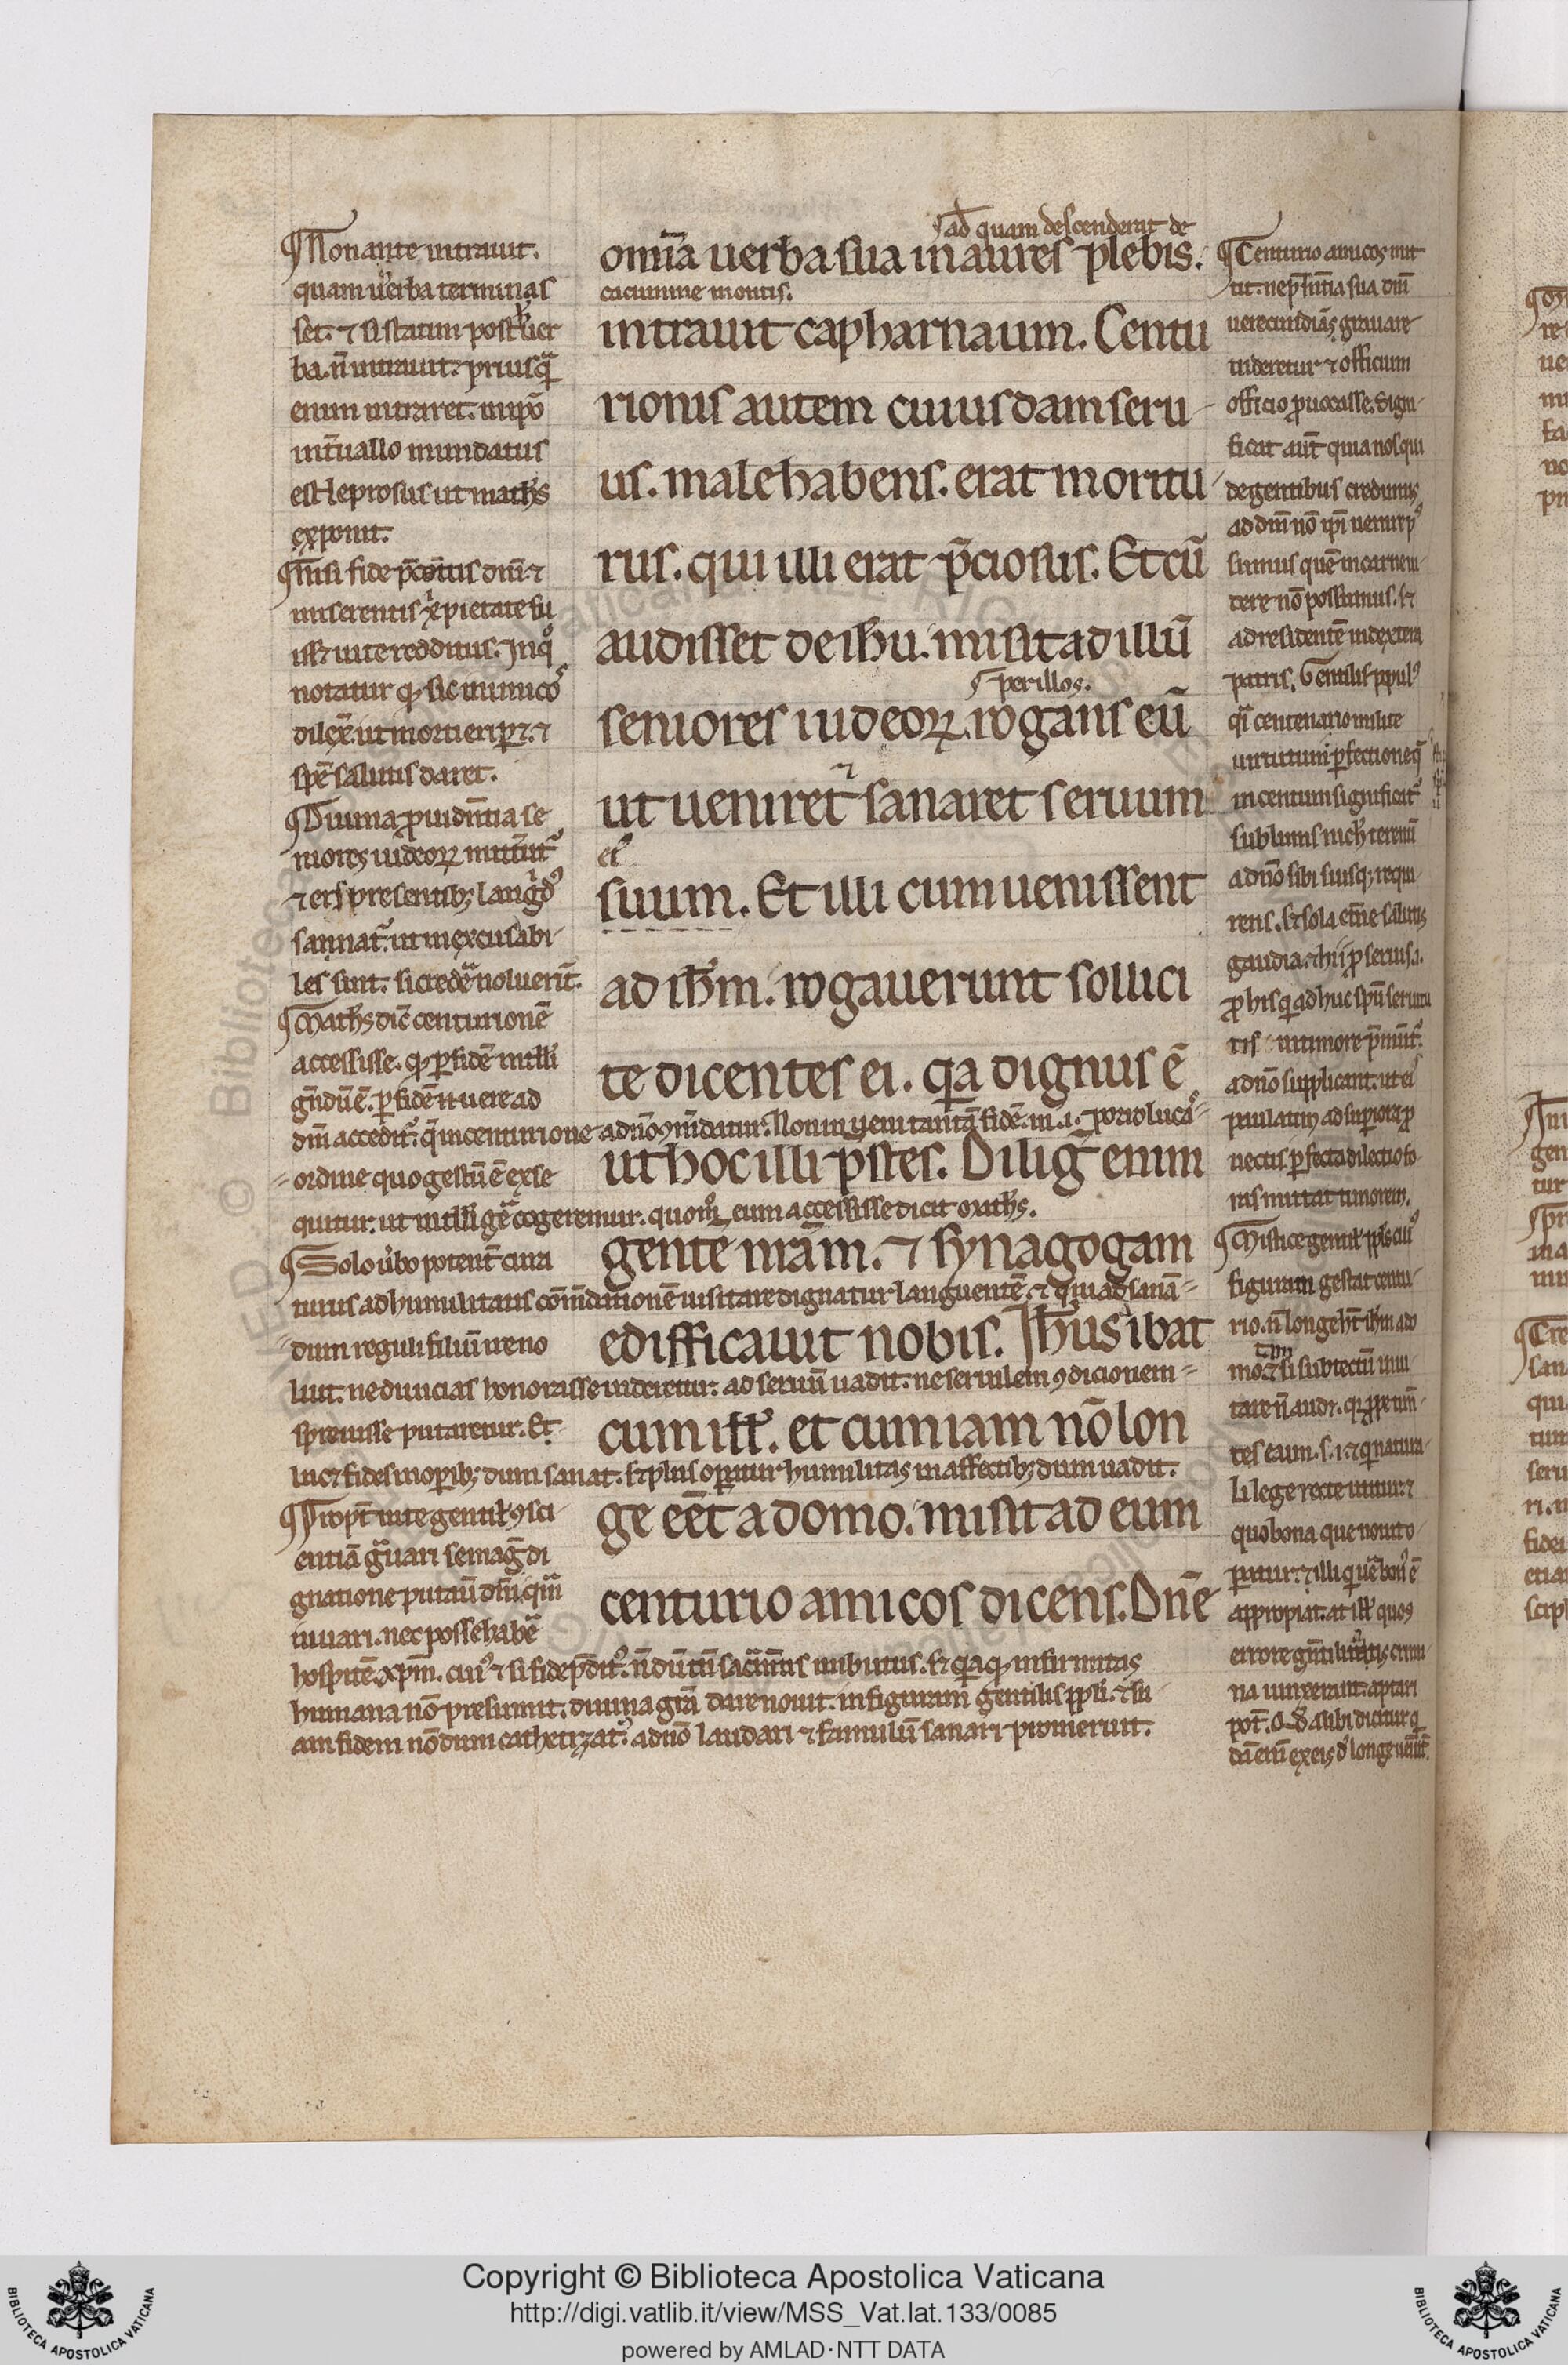 omīa uerba sua in aures plebis.
¶ ad quam descenderat de
cacumine montis.
intrauit capharnaum. Centu
rionis autem cuiusdam seru-
us. male habens. erat moritu-
rus. qui illi erat p̄ciosus. Et cū
audisset de ihu. misit ad illū
seniores iudeoꝝ. rogans eū
¶ per illos.
ut ueniret ⁊ sanaret seruum
ei᷒
suum. Et illi cum uenissent
ad ihm̄. rogauerunt sollici
te dicentes ei. qa dignus ē
ut hoc illi p̄stes. Diliḡ enim
gentē nrām. ⁊ synagogam
edifficauit nobis. Ihūs ibat
cum ill̄. et cum iam nō lon
ge eēt a domo. misit ad eum
centurio amicos dicens. Dnē
¶ Non ante intrauit.
quam ůerba terminas
set. ⁊ si statim post h̓ uer
ba. n̄ intrauit. priusqᷓ
enim intraret. in ipō
int̄uallo mundatus
est leprosus ut math̄s
exponit.
¶ Nisi fide p̄cōītus dnī ⁊
miserentis x̓p̄i pietate su
iss; uite redditus. In qͦ
notatur ꝙ sic inimicos
spē salutis daret.
¶ Diuina ꝓuidn̄tia se
niores iudeoꝝ mittūt᷑
⁊ eis presentibꝫ langͥd᷒
sannat᷑. ut inexcusabi-
les sint. si credeᷓ noluerit̄.
¶ Math̄s dic̄ centurionē
accessisse. ꝙ ꝑ fidē intell̓i
gn̄dū ē. ꝑ fidē it uere ad
dm̄ accedit᷑. q̄ in centurione a dnō ꝯmēdatur. Non inueni tantā fidē. in. i. Porro lucas-
ordine quo gestū ē exse
quitur. ut intelliġe cogeremur. quom̊ eum accessisse dicit math̄s.
¶ Solo ůbo potent̄ cura
turus ad humilitatis com̄dationē uisitare dignatur languentē. ⁊ qui ad sanā-
dum reguli filiū ire no
luit. ne diuicias honorasse uideretur. ad seruū uadit. ne seruilem ꝯdicionem-
spreuisse putaretur. Et
lucet fides in oꝑibꝫ dum sanat. ⁊ plus oꝑatur humilitas in affectibꝫ dum uadit.
¶ Propt̄ uite gentil̓ ꝯsci-
entiā gᷓuari se mag̓ di
gnatione putaū dnī. qᷓm
iuuari. nec posse habeᷓ
hospitē xp̄m. cui᷒ ⁊ si fide p̄dit᷒. n̄ dū tm̄ sacᷓm̄tis imbutus. ⁊ qᷓ qᷓ infirmitas
humana nō presumit. diuina grā dare nouit. in figuram gentilis ppl̓i.
am fidem nōdum cathetizat᷒. a dnō laudari ⁊ famulū sanari promeruit.
¶ Centurio amicos mit
tit. ne p̄sn̄tia sua dnī
uerecundiā gᷓuare
uideretur ⁊ officium
officio ꝓuocasse. Signi-
ficat aut̄ quia nos qui
de gentibus credimus
ad dm̄ nō ip̄i uenire po᷒
simus quē in carne ui-
dere nō possumus. ⁊
ad residentē in dextera
patris. Gentilis ppul᷒
qͥ centenario milite
uirtutum ꝑfectione qᷓ
in centum significat᷑
sublimis nich̓ terenū
a dnō sibi suisqꝫ requi-
rens. ⁊ sola et̄ne salutis
gaudia.
ꝓ his qͥ adhuc spū seruitu
tis in timore p̄mūt᷑.
a dnō supplicant. ut ei᷒
paulatim ad suꝑiora ꝓ
uectis ꝑfecta dilectio fo
ras mittat timorem.
¶ Mistice gentil̓ ppl̓s cui᷒
figuram gestat centu-
rio. n̄ longe h̄t ihm̄ a do
mo. tm̄ ⁊ si sub tectū inui-
tare n̄ audꝫ.
li lege recte utitur. ⁊
quo bona que nouit o-
ꝑatur.
appropiat. at ill̓ quos
errore gn̄tilitatis crimi-
na
pot̄. Qd̓ alibi dicitur q
dā enī ex eis d̓ longe uenīt̄.
Copyright © Biblioteca Apostolica Vaticana
http://digi.vatlib.it/view/MSS_Vat.lat.133/0085
powered by AMLAD·NTT DATA
BIBLIOTECA APOSTOLICA VATICANA
BIBLIOTECA APOSTOLICA VATICANA